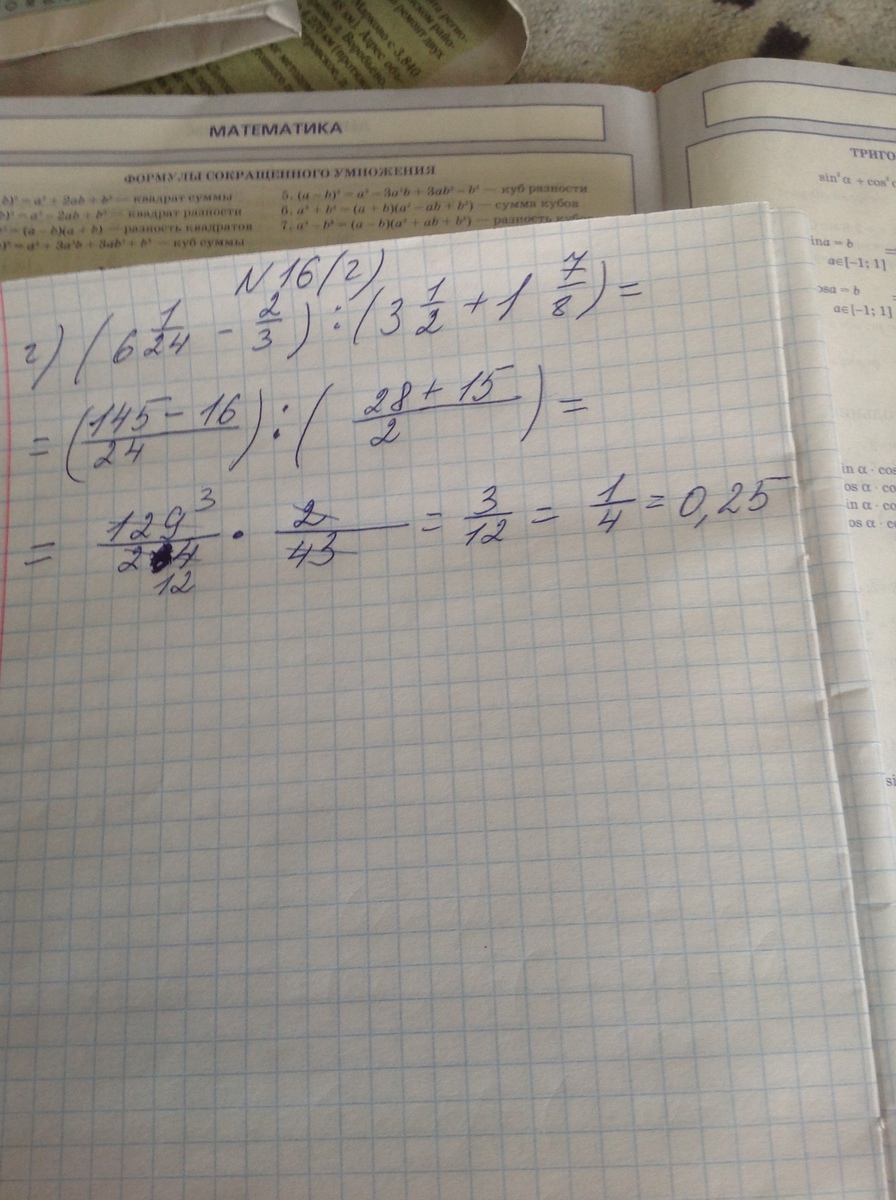 МАТЕМАТИКА
ФОРМУЛЫ СОКРАЩЕННОГО УМНОЖЕНИЯ
b)² = a² + 2ab + b² — квадрат суммы
b)² = a² − 2ab + b² — квадрат разности
² = (a − b)(a + b) — разность квадратов
)³ = a³ + 3a²b + 3ab² + b³ — куб суммы
5. (a − b)³ = a³ − 3a²b + 3ab² − b³ — куб разности
6. a³ + b³ = (a + b)(a² − ab + b²) — сумма кубов
7. a³ − b³ = (a − b)(a² + ab + b²) — разность кубов
ТРИГО
sin²α + cos²
ina = b
a∈[−1; 1]
osa = b
a∈[−1; 1]
in α · cos
os α · co
in α · co
os α · co
N 16(г)
г) (6 1/24 − 2/3) : (3 1/2 + 1 7/8) =
= (145 − 16 / 24) : (28 + 15 / 2) =
= 129³ / 24 12 · 2 / 43 = 3/12 = 1/4 = 0,25